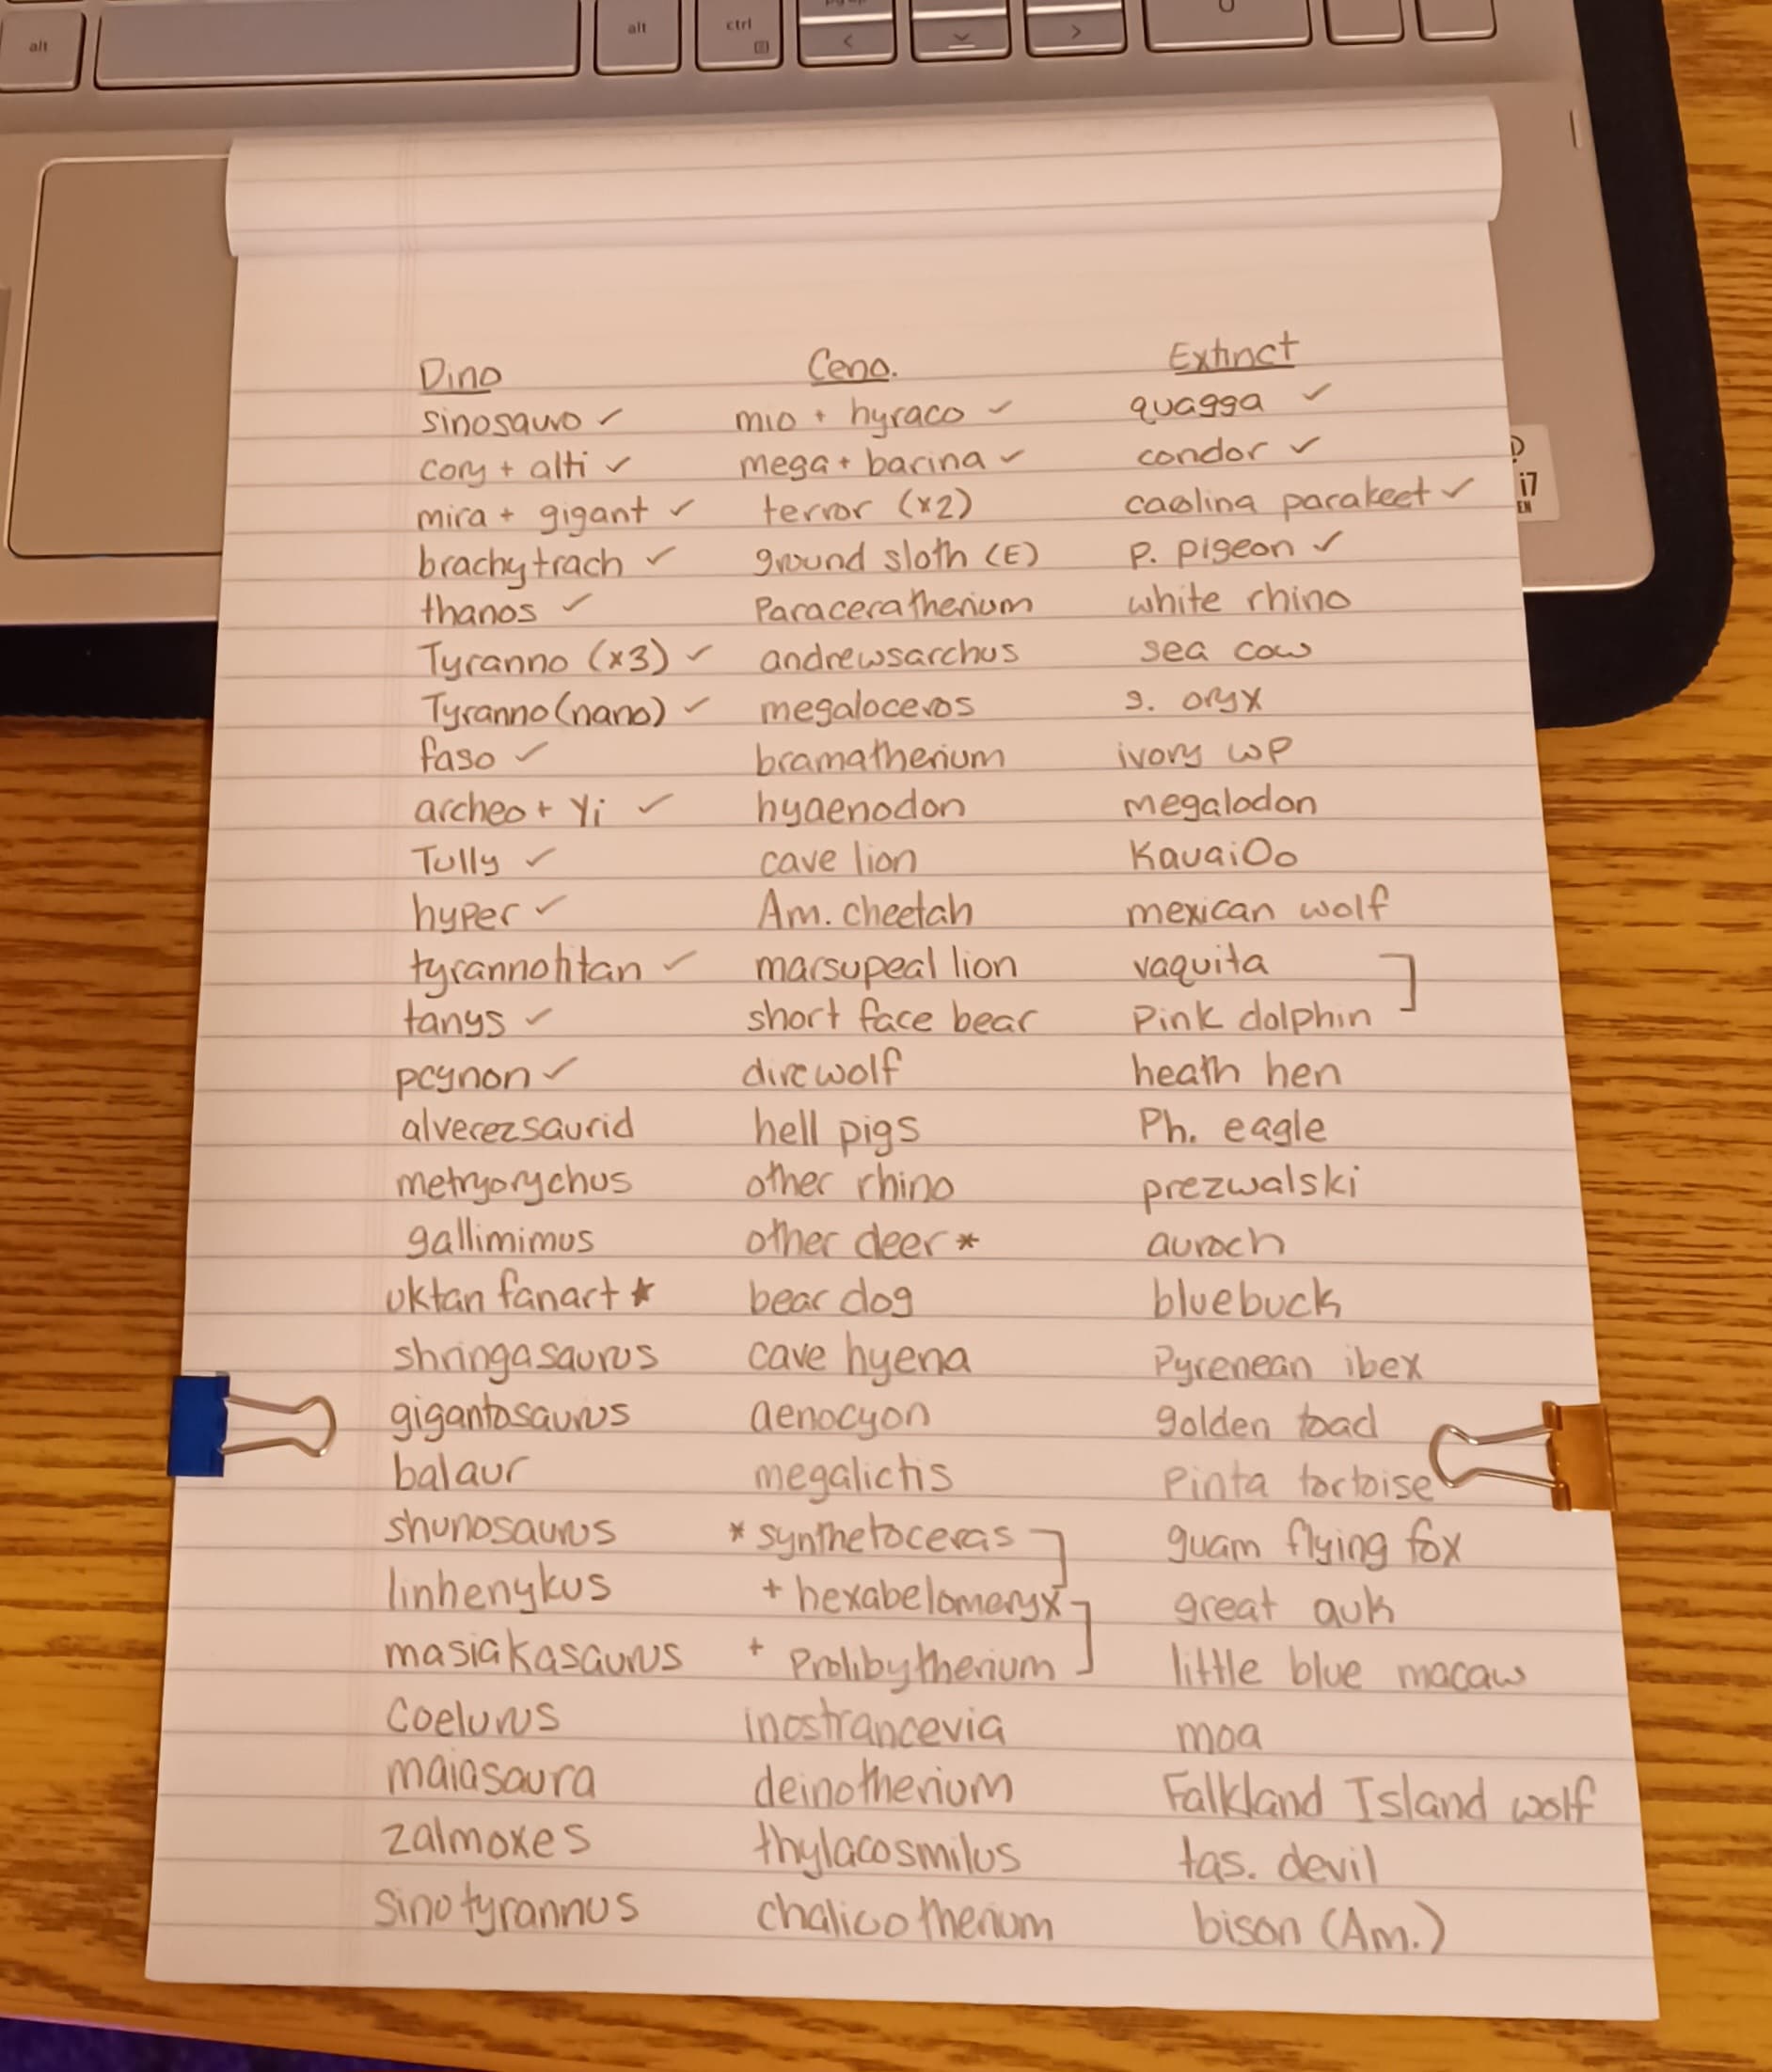 alt
alt
ctrl
<
>
Dino Ceno. Extinct
sinosauro ✓ mio + hyraco ✓ quagga ✓
cory + alti ✓ mega + barina ✓ condor ✓
mira + gigant ✓ terror (x2) caolina parakeet ✓
brachytrach ✓ ground sloth (E) P. pigeon ✓
thanos ✓ Paraceratherium white rhino
Tyranno (x3) ✓ andrewsarchus sea cow
Tyranno (nano) ✓ megaloceros s. oryx
faso ✓ bramatherium ivory WP
archeo + Yi ✓ hyaenodon megalodon
Tully ✓ cave lion KauaiOo
hyper ✓ Am. cheetah mexican wolf
tyrannotitan ✓ marsupeal lion vaquita
tanys ✓ short face bear Pink dolphin
pcynon ✓ direwolf heath hen
alverezsaurid hell pigs Ph. eagle
metryorychus other rhino prezwalski
gallimimus other deer * auroch
uktan fanart * bear dog bluebuck
shringasaurus cave hyena Pyrenean ibex
gigantosaurus aenocyon golden toad
balaur megalictis Pinta tortoise
shunosaurus * synthetoceras guam flying fox
linhenykus + hexabelomeryx great auk
masiakasaurus + Prolibytherium little blue macaw
Coelurus inostrancevia moa
maiasaura deinotherium Falkland Island wolf
zalmoxes thylacosmilus tas. devil
sinotyrannus chalicotherium bison (Am.)
i7
EN